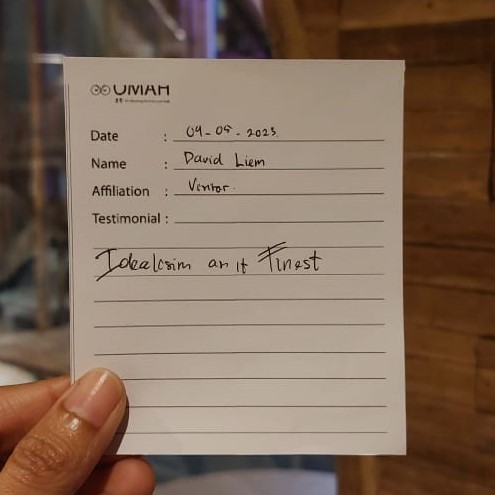 UMAH
Date : 09-05-2023.
Name : David Liem
Affiliation : Ventor.
Testimonial :
Idealcsim an it Finest